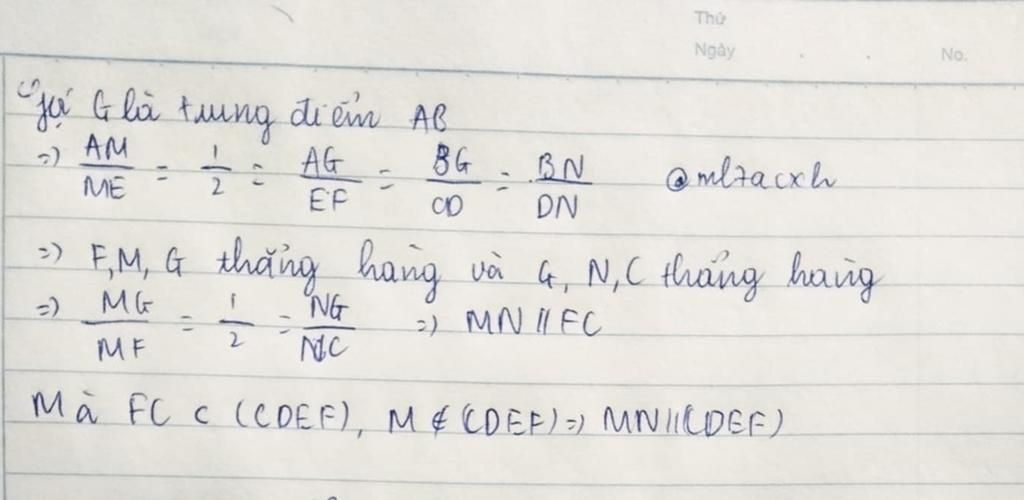 Thứ
Ngày . . No.
Gọi G là trung điểm AB
=) AM/ME = 1/2 = AG/EF = BG/CD = BN/DN @ml7acxh
=) F,M, G thẳng hàng và G, N,C thẳng hàng
=) MG/MF = 1/2 = NG/NC =) MN // FC
Mà FC ⊂ (CDEF), M ∉ (CDEF) =) MN//(CDEF)